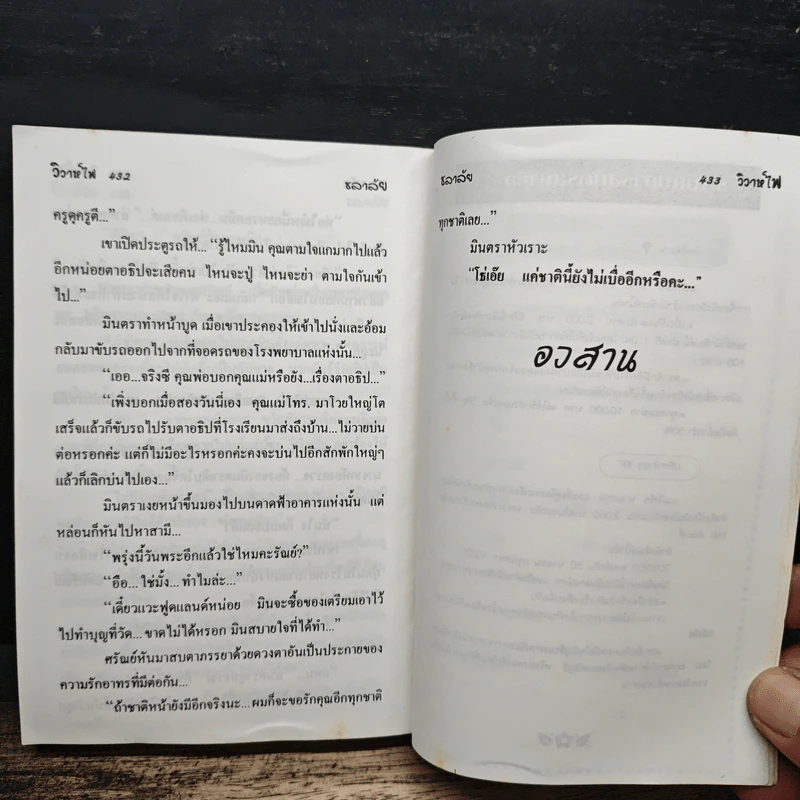 วิวาห์ไฟ 432
ชลาลัย
ครูดุครูตี...”
เขาเปิดประตูรถให้... “รู้ไหมมิน คุณตามใจแกมากไปแล้ว
อีกหน่อยตาอธิปจะเสียคน ไหนจะปู่ ไหนจะย่า ตามใจกันเข้า
ไป...”
มินตราทำหน้าบูด เมื่อเขาประคองให้เข้าไปนั่งและอ้อม
กลับมาขับรถออกไปจากที่จอดรถของโรงพยาบาลแห่งนั้น...
“เออ...จริงซี คุณพ่อบอกคุณแม่หรือยัง...เรื่องตาอธิป...”
“เพิ่งบอกเมื่อสองวันนี่เอง คุณแม่โทร. มาโวยใหญ่โต
เสร็จแล้วก็ขับรถไปรับตาอธิปที่โรงเรียนมาส่งถึงบ้าน...ไม่วายบ่น
ต่อหรอกค่ะ แต่ก็ไม่มีอะไรหรอกค่ะคงจะบ่นไปอีกสักพักใหญ่ๆ
แล้วก็เลิกบ่นไปเอง...”
มินตราเงยหน้าขึ้นมองไปบนดาดฟ้าอาคารแห่งนั้น แต่
หล่อนก็หันไปหาสามี...
“พรุ่งนี้วันพระอีกแล้วใช่ไหมคะรัณย์?”
“อือ... ใช่มั้ง... ทำไมล่ะ...”
“เดี๋ยวแวะฟูดแลนด์หน่อย มินจะซื้อของเตรียมเอาไว้
ไปทำบุญที่วัด... ขาดไม่ได้หรอก มินสบายใจที่ได้ทำ...”
ศรัณย์หันมาสบตาภรรยาด้วยดวงตาอันเป็นประกายของ
ความรักอาทรที่มีต่อกัน...
“ถ้าชาติหน้ายังมีอีกจริงนะ... ผมก็จะขอรักคุณอีกทุกชาติ
ชลาลัย
433 วิวาห์ไฟ
ทุกชาติเลย...”
มินตราหัวเราะ
“โธ่เอ๊ย แค่ชาตินี้ยังไม่เบื่ออีกหรือคะ...”
อวสาน